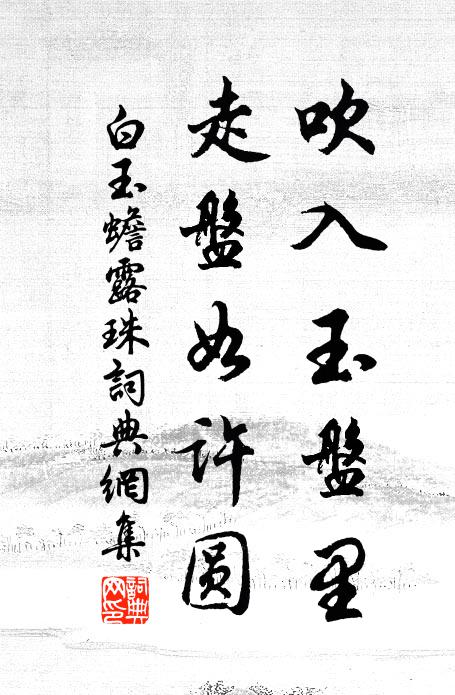 吹入玉盤里
走盤如許圓
白玉蟾露珠詞典網集
詞典
网印